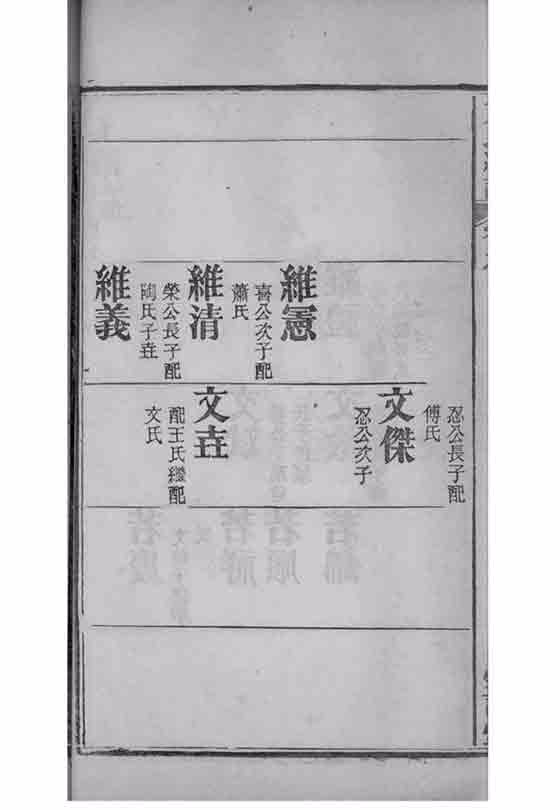 維憲
喜公次子配
蕭氏
維清
榮公長子配
陶氏子垚
維義
忍公長子配
傅氏
文傑
忍公次子
文垚
配王氏繼配
文氏